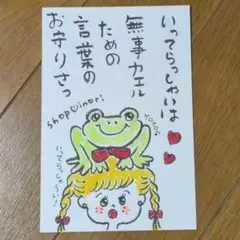 いってらっしゃいは
無事カエル
ための
言葉の
お守りさっ
shop♡inori
いってらっしゃーい